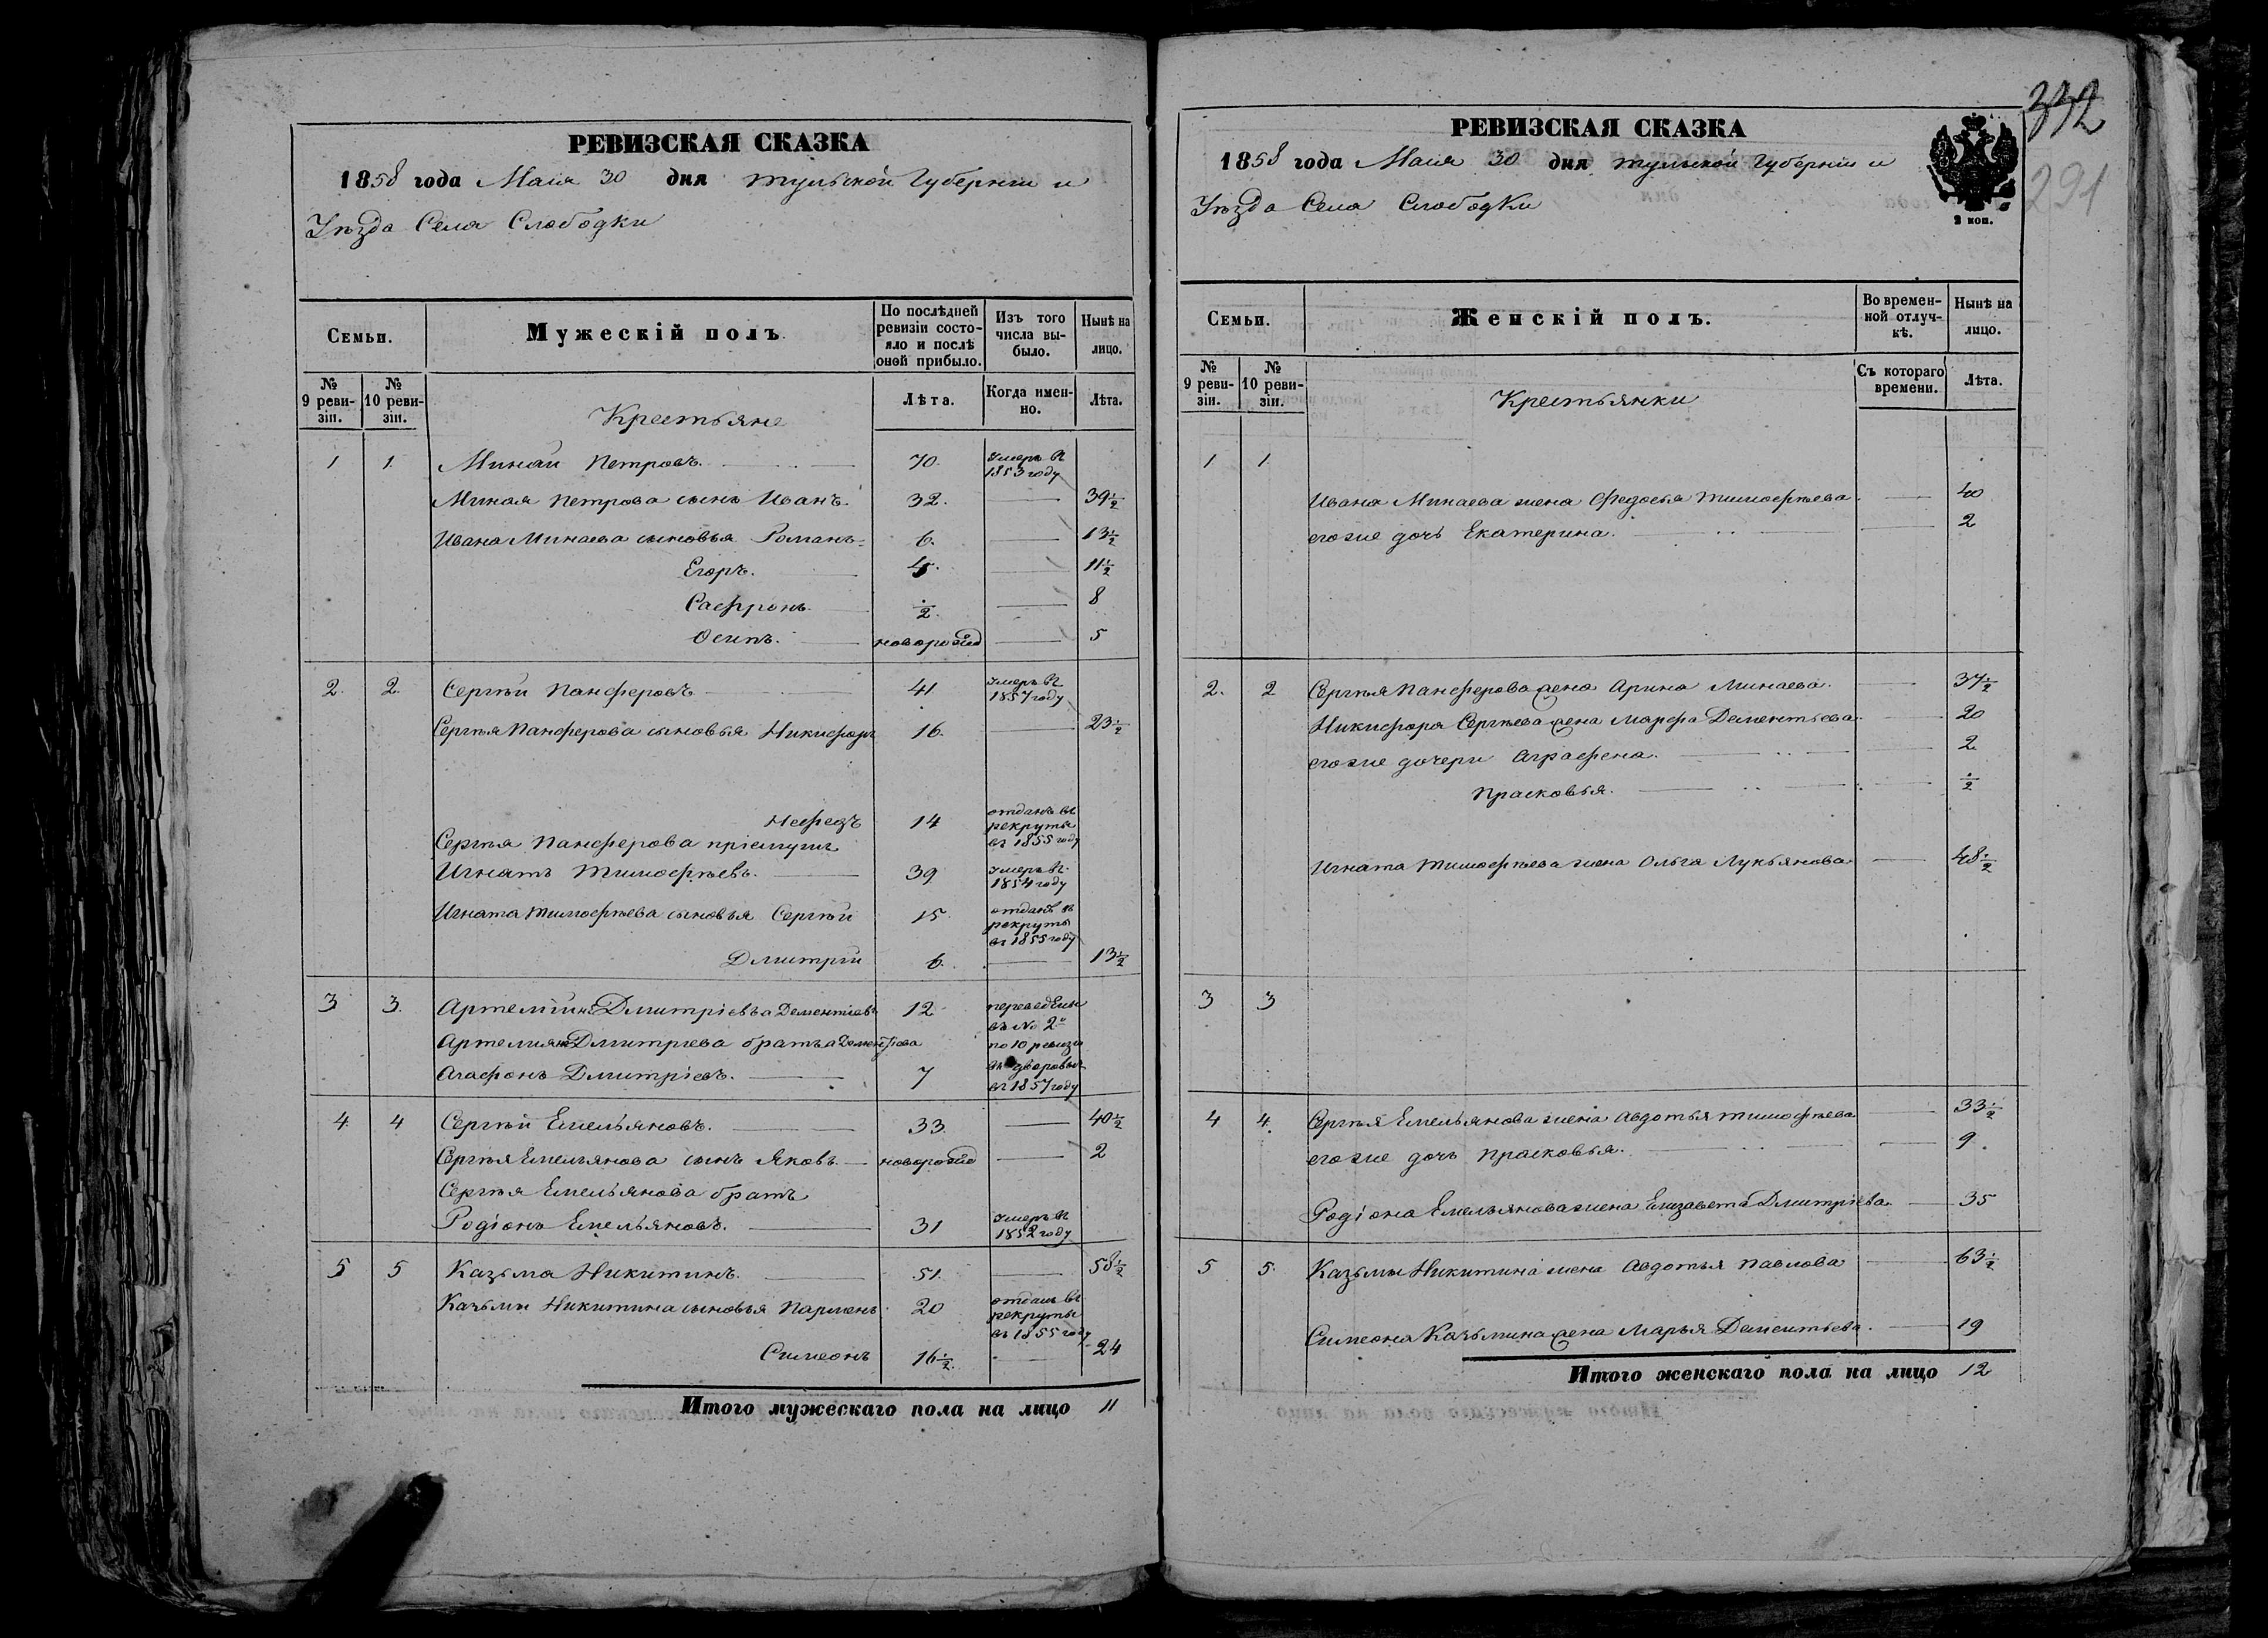 РЕВИЗСКАЯ СКАЗКА
1858 года Маия 30 дня Тульской Губерніи и
Уѣзда Села Слободки
Семьи.
Мужескій полъ
По послѣдней ревизіи состояло и послѣ оной прибыло.
Изъ того числа выбыло.
Нынѣ на лицо.
№ 9 ревизіи.
№ 10 ревизіи.
Крестьяне
Лѣта.
Когда именно.
Лѣта.
1 1 Минай Петровъ. 70. Умеръ в 1853 году
Миная Петрова сынъ Иванъ. 32. 39½
Ивана Минаева сыновья Романъ 6. 13½
Егоръ. 11½
Сафронъ ½ 8
Осипъ. новорожд 5
2. 2. Сергѣй Панферовъ 41 Умеръ в 1857 году
Сергѣя Панферова сыновья Никифоръ 16. 23½
Нефедъ 14 отданъ въ рекруты въ 1855 году
Сергѣя Панферова пріемышъ
Игнатъ Тимофѣевъ. 39 Умеръ въ 1854 году
Игната Тимофѣева сыновья Сергѣй 15 отданъ въ рекруты въ 1855 году
Дмитрій 6. 13½
3 3. Артемій Дмитріевъ Дементіевъ 12 переведены
въ № 2й
Артемия Дмитриева братъ по 10 ревизи
Агафонъ Дмитріевъ. 7 въ дворовые въ 1857 году
4. 4 Сергѣй Емельяновъ. 33. 40½
Сергѣя Емельянова сынъ Яковъ новорожд 2
Сергѣя Емельянова братъ
Родіонъ Емельяновъ. 31 Умеръ в 1852 году
5 5 Казьма Никитинъ. 51. 58½
Казьмы Никитина сыновья Парменъ 20 отданъ въ рекруты въ 1855 году
Симеонъ 16½. 24
Итого мужескаго пола на лицо 11
РЕВИЗСКАЯ СКАЗКА
332
1858 года Маия 30 дня Тульской Губерніи и
291
Уѣзда Села Слободки
2 коп.
Семьи.
Женскій полъ.
Во временной отлучкѣ.
Нынѣ на лицо.
№ 9 ревизіи.
№ 10 ревизіи.
Крестьянки
Съ котораго времени.
Лѣта.
1 1
Ивана Минаева жена Федосья Тимофѣева 40
егоже дочь Екатерина. 2
2. 2 Сергѣя Панферова жена Арина Минаева. 37½
Никифора Сергѣева жена Марфа Дементьева 20
егоже дочери Аграфена. 2
Прасковья. ½
Игната Тимофѣева жена Ольга Лукьянова 48½
3 3
4 4. Сергѣя Емельянова жена Авдотья Тимофѣева 33½
егоже дочь Прасковья. 9.
Родіона Емельянова жена Елизавета Дмитріева 35
5 5. Казьмы Никитина жена Авдотья Павлова 63½
Симеона Казьмина жена Марья Дементьева. 19
Итого женскаго пола на лицо 12